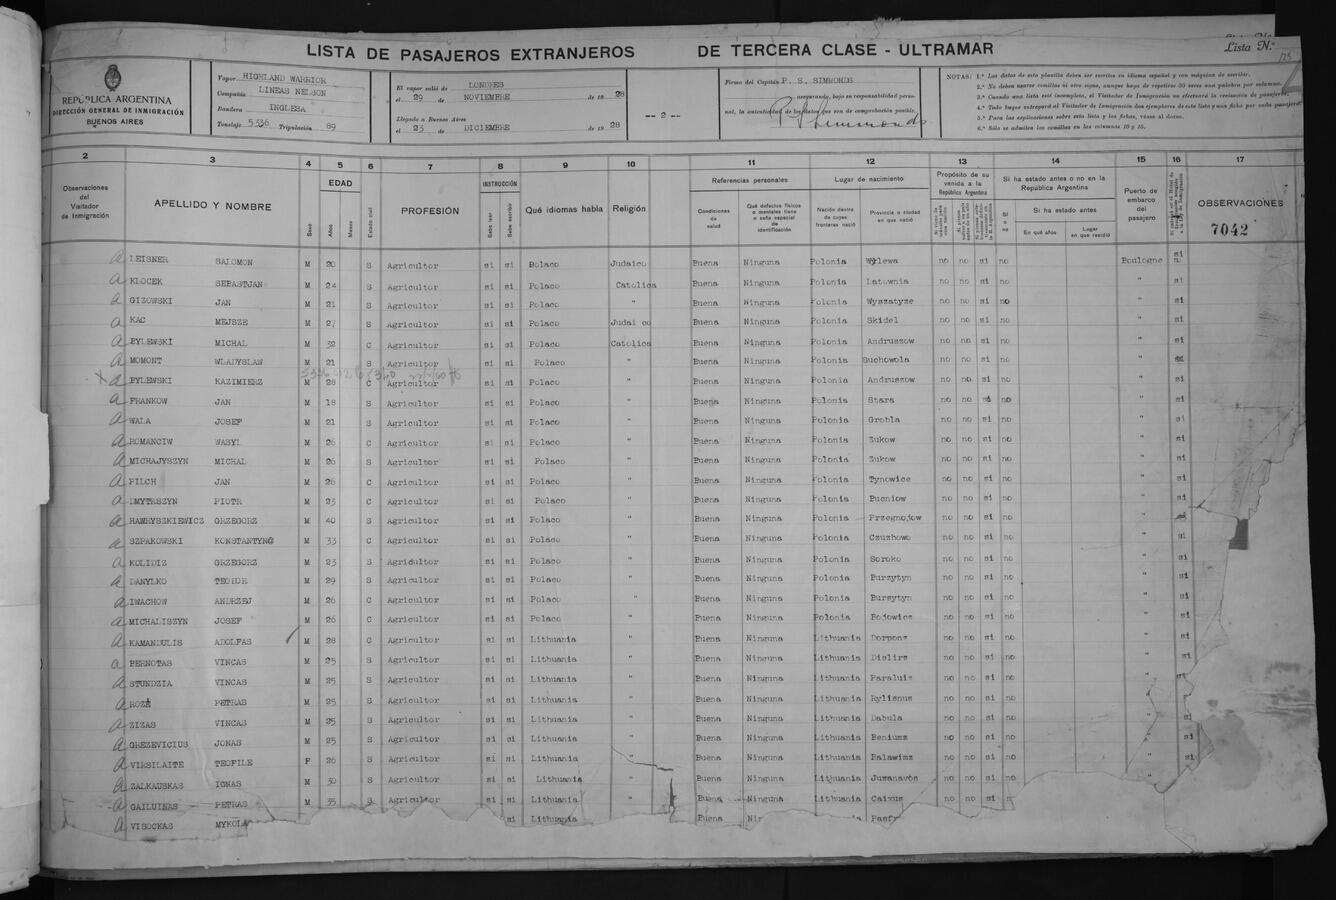 LISTA DE PASAJEROS EXTRANJEROS DE TERCERA CLASE - ULTRAMAR
Lista N.º 175
REPÚBLICA ARGENTINA
DIRECCIÓN GENERAL DE INMIGRACIÓN
BUENOS AIRES
Vapor HIGHLAND WARRIOR
Compañía LINEAS NELSON
Bandera INGLESA
Tonelaje 5336 Tripulación 89
El vapor salió de LONDRES
el 29 de NOVIEMBRE de 1928
Llegado a Buenos Aires
el 23 de DICIEMBRE de 1928
-- 2 --
Firma del Capitán P. S. SIMMONDS
asegurando, bajo su responsabilidad personal, la autenticidad de los datos que son de comprobación posible.
NOTAS: 1.ª Los datos de esta planilla deben ser escritos en idioma español y con máquina de escribir.
2.ª No deben usarse comillas ni otro signo, aunque haya de repetirse 30 veces una palabra por columna.
3.ª Cuando una lista esté incompleta, el Visitador de Inmigración no efectuará la revisación de pasajeros.
4.ª Todo buque entregará al Visitador de Inmigración dos ejemplares de esta lista y una ficha por cada pasajero.
5.ª Para las explicaciones sobre esta lista y las fichas, véase al dorso.
6.ª Sólo se admiten las comillas en las columnas 10 y 15.
2 3 4 5 6 7 8 9 10 11 12 13 14 15 16 17
Observaciones del Visitador de Inmigración
APELLIDO Y NOMBRE
Sexo
EDAD
Años
Meses
Estado civil
PROFESIÓN
INSTRUCCIÓN
Sabe leer
Sabe escribir
Qué idiomas habla
Religión
Referencias personales
Condiciones de salud
Qué defectos físicos o mentales tiene o seña especial de identificación
Lugar de nacimiento
Nación dentro de cuyas fronteras nació
Provincia o ciudad en que nació
Propósito de su venida a la República Argentina
Si ha estado antes o no en la República Argentina
Si o no
Si ha estado antes
En qué años
Lugar en que residió
Puerto de embarco del pasajero
OBSERVACIONES
7042
a LEISNER SALOMON M 20 S Agricultor si si Polaco Judaico Buena Ninguna Polonia Wylewa no no si no Boulogne si
a KLOCEK SEBASTJAN M 24 S Agricultor si si Polaco Catolica Buena Ninguna Polonia Latownia no no si no " si
a GIZOWSKI JAN M 21 S Agricultor si si Polaco " Buena Ninguna Polonia Wyszatyze no no si no " si
a KAC MEJSZE M 27 S Agricultor si si Polaco Judaico Buena Ninguna Polonia Skidel no no si no " si
a BYLEWSKI MICHAL M 32 C Agricultor si si Polaco Catolica Buena Ninguna Polonia Andruszow no no si no " si
a MOMONT WLADYSLAW M 21 S Agricultor si si Polaco " Buena Ninguna Polonia Suchowola no no si no " si
x a BYLEWSKI KAZIMIERZ M 28 C Agricultor si si Polaco " Buena Ninguna Polonia Andruszow no no si no " si
a FRANKOW JAN M 18 S Agricultor si si Polaco " Buena Ninguna Polonia Stara no no si no " si
a WALA JOSEF M 21 S Agricultor si si Polaco " Buena Ninguna Polonia Grobla no no si no " si
a ROMANCIW WASYL M 26 C Agricultor si si Polaco " Buena Ninguna Polonia Zukow no no si no " si
a MICHAJYSZYN MICHAL M 26 S Agricultor si si Polaco " Buena Ninguna Polonia Zukow no no si no " si
a PILCH JAN M 26 C Agricultor si si Polaco " Buena Ninguna Polonia Tynowice no no si no " si
a DMYTRSZYN PIOTR M 23 C Agricultor si si Polaco " Buena Ninguna Polonia Bucniow no no si no " si
a HAWRYSZKIEWICZ GRZEGORZ M 40 S Agricultor si si Polaco " Buena Ninguna Polonia Przegnojow no no si no " si
a SZPAKOWSKI KONSTANTYN M 33 C Agricultor si si Polaco " Buena Ninguna Polonia Czuzhowo no no si no " si
a KOLIDIZ GRZEGORZ M 23 S Agricultor si si Polaco " Buena Ninguna Polonia Soroko no no si no " si
a DANYLKO TEODOR M 29 S Agricultor si si Polaco " Buena Ninguna Polonia Burzytyn no no si no " si
a IWACHOW ANDRZEJ M 26 C Agricultor si si Polaco " Buena Ninguna Polonia Bursytyn no no si no " si
a MICHALISZYN JOSEF M 26 C Agricultor si si Polaco " Buena Ninguna Polonia Bojowice no no si no " si
a KAMANDULIS ADOLFAS M 28 C Agricultor si si Lithuania " Buena Ninguna Lithuania Dorponz no no si no " si
a PERNOTAS VINCAS M 25 S Agricultor si si Lithuania " Buena Ninguna Lithuania Dislirz no no si no " si
a STUNDZIA VINCAS M 25 S Agricultor si si Lithuania " Buena Ninguna Lithuania Paraluiz no no si no " si
a ROZE PETRAS M 25 S Agricultor si si Lithuania " Buena Ninguna Lithuania Rylisnus no no si no "
a ZIZAS VINCAS M 25 S Agricultor si si Lithuania " Buena Ninguna Lithuania Dabula no no si no " si
a GREZEVICIUS JONAS M 25 S Agricultor si si Lithuania " Buena Ninguna Lithuania Beniusz no no si no " si
a VIRSILAITE TEOFILE F 26 S Agricultor si si Lithuania " Buena Ninguna Lithuania Palawisz no no si no " si
a ZALKAUSKAS IGNAS M 30 S Agricultor si si Lithuania " Buena Ninguna Lithuania Juzanavos no no si no "
a GAILUINAS PETRAS M 35 S Agricultor si si Lithuania " Buena Ninguna Lithuania Caixus no no si n
a VISOCKAS MYKOLA si Lithuania Buena Nin